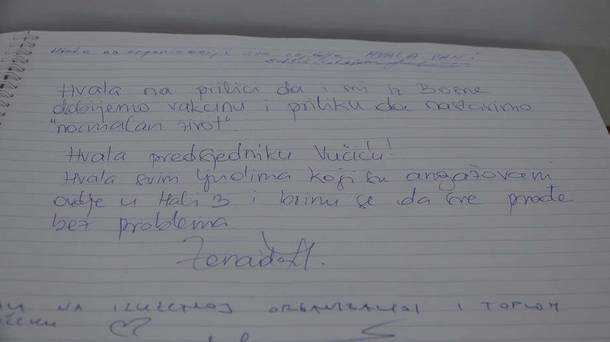 Hvala na organizaciji HVALA VAM!
Hvala na prilici da i mi iz Bosne
dobijemo vakcinu i priliku da nastavimo
"normalan život".
Hvala predsjedniku Vučiću!
Hvala svim ljudima koji su angažovani
ovdje u Hali 3 i brinu se da sve prođe
bez problema
Zenaida H.
NA IZUZETNOJ ORGANIZACIJI I TOPLOM